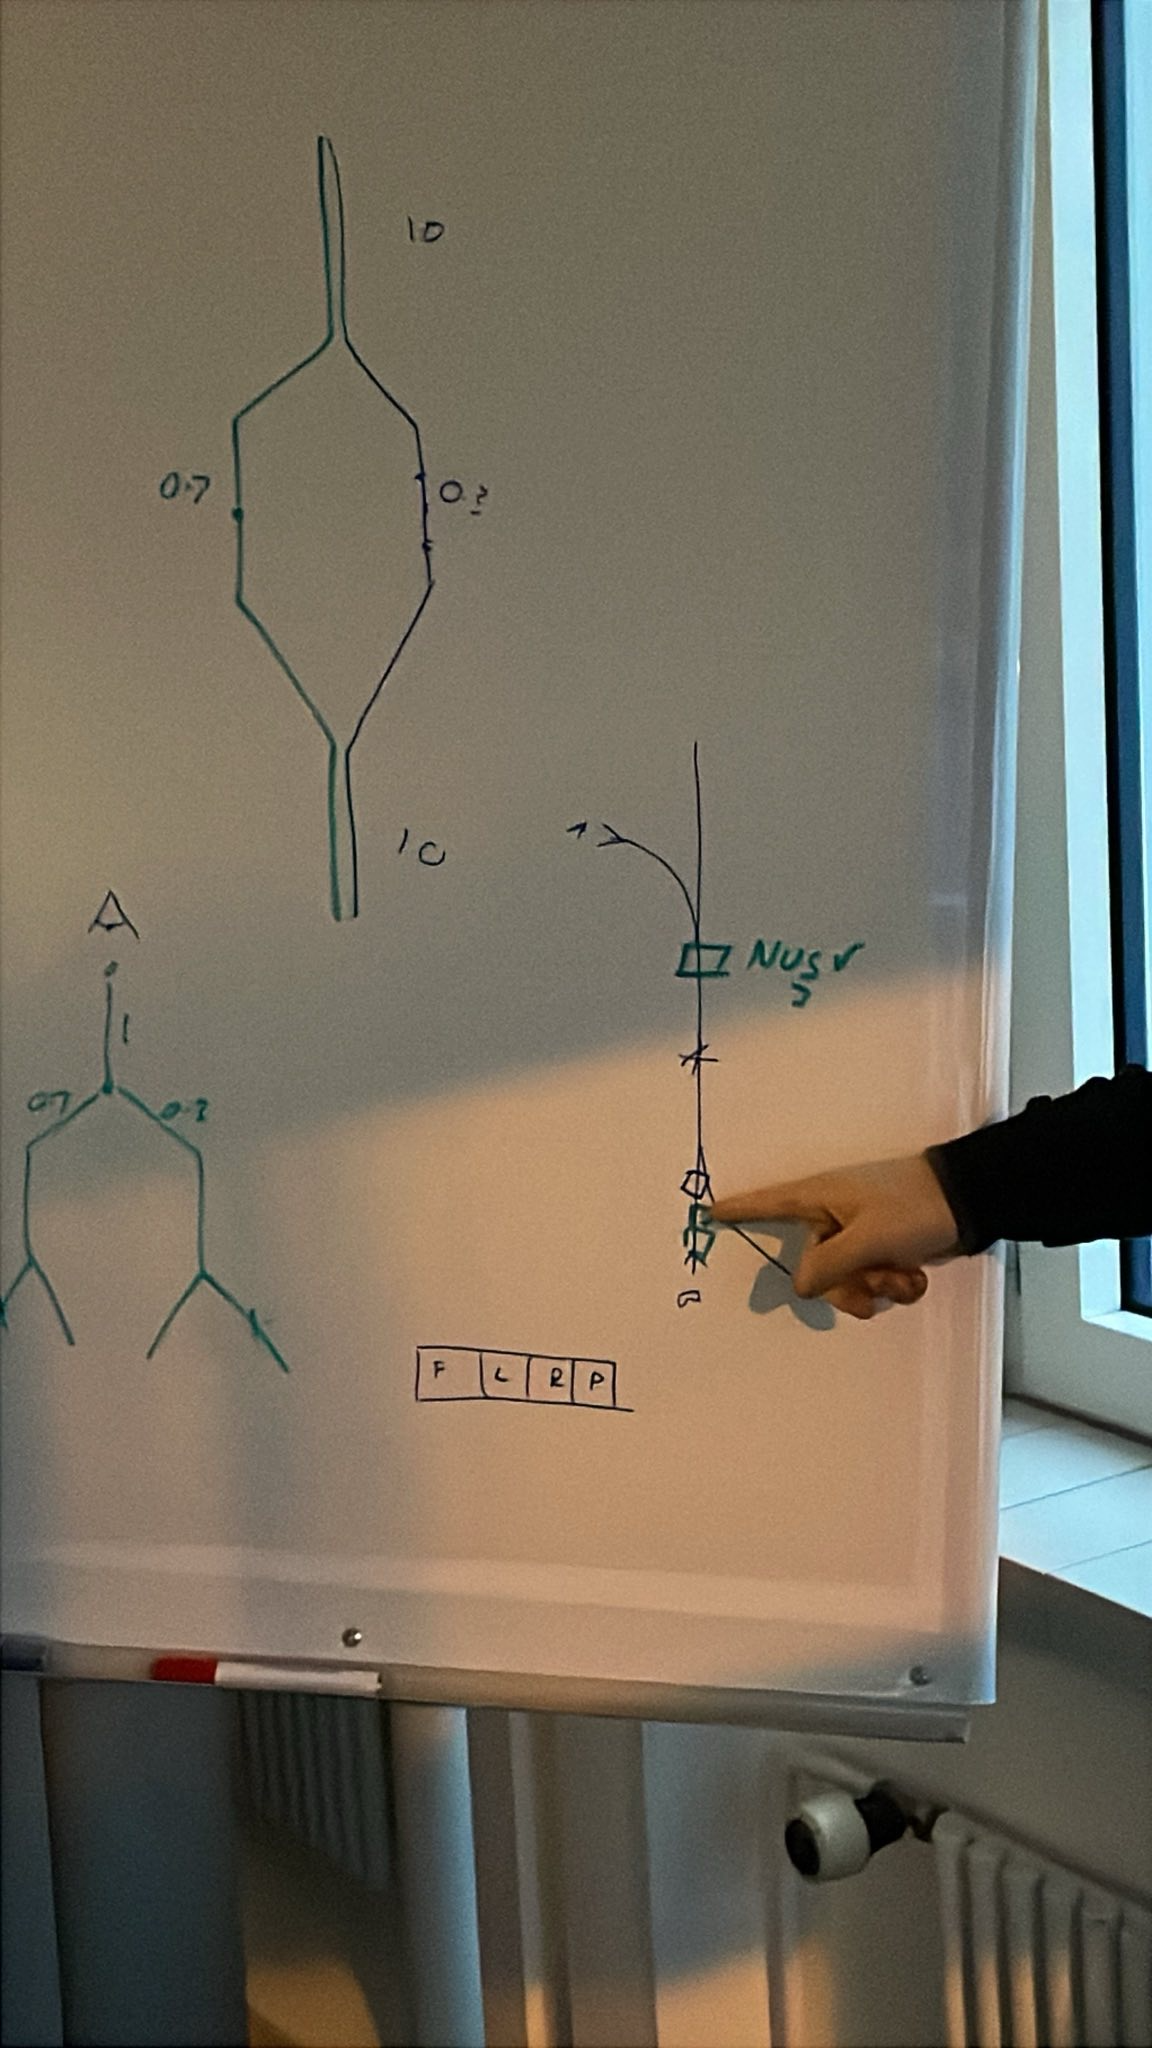 10
0.7
0.3
10
A
1
0.7
0.3
F L R P